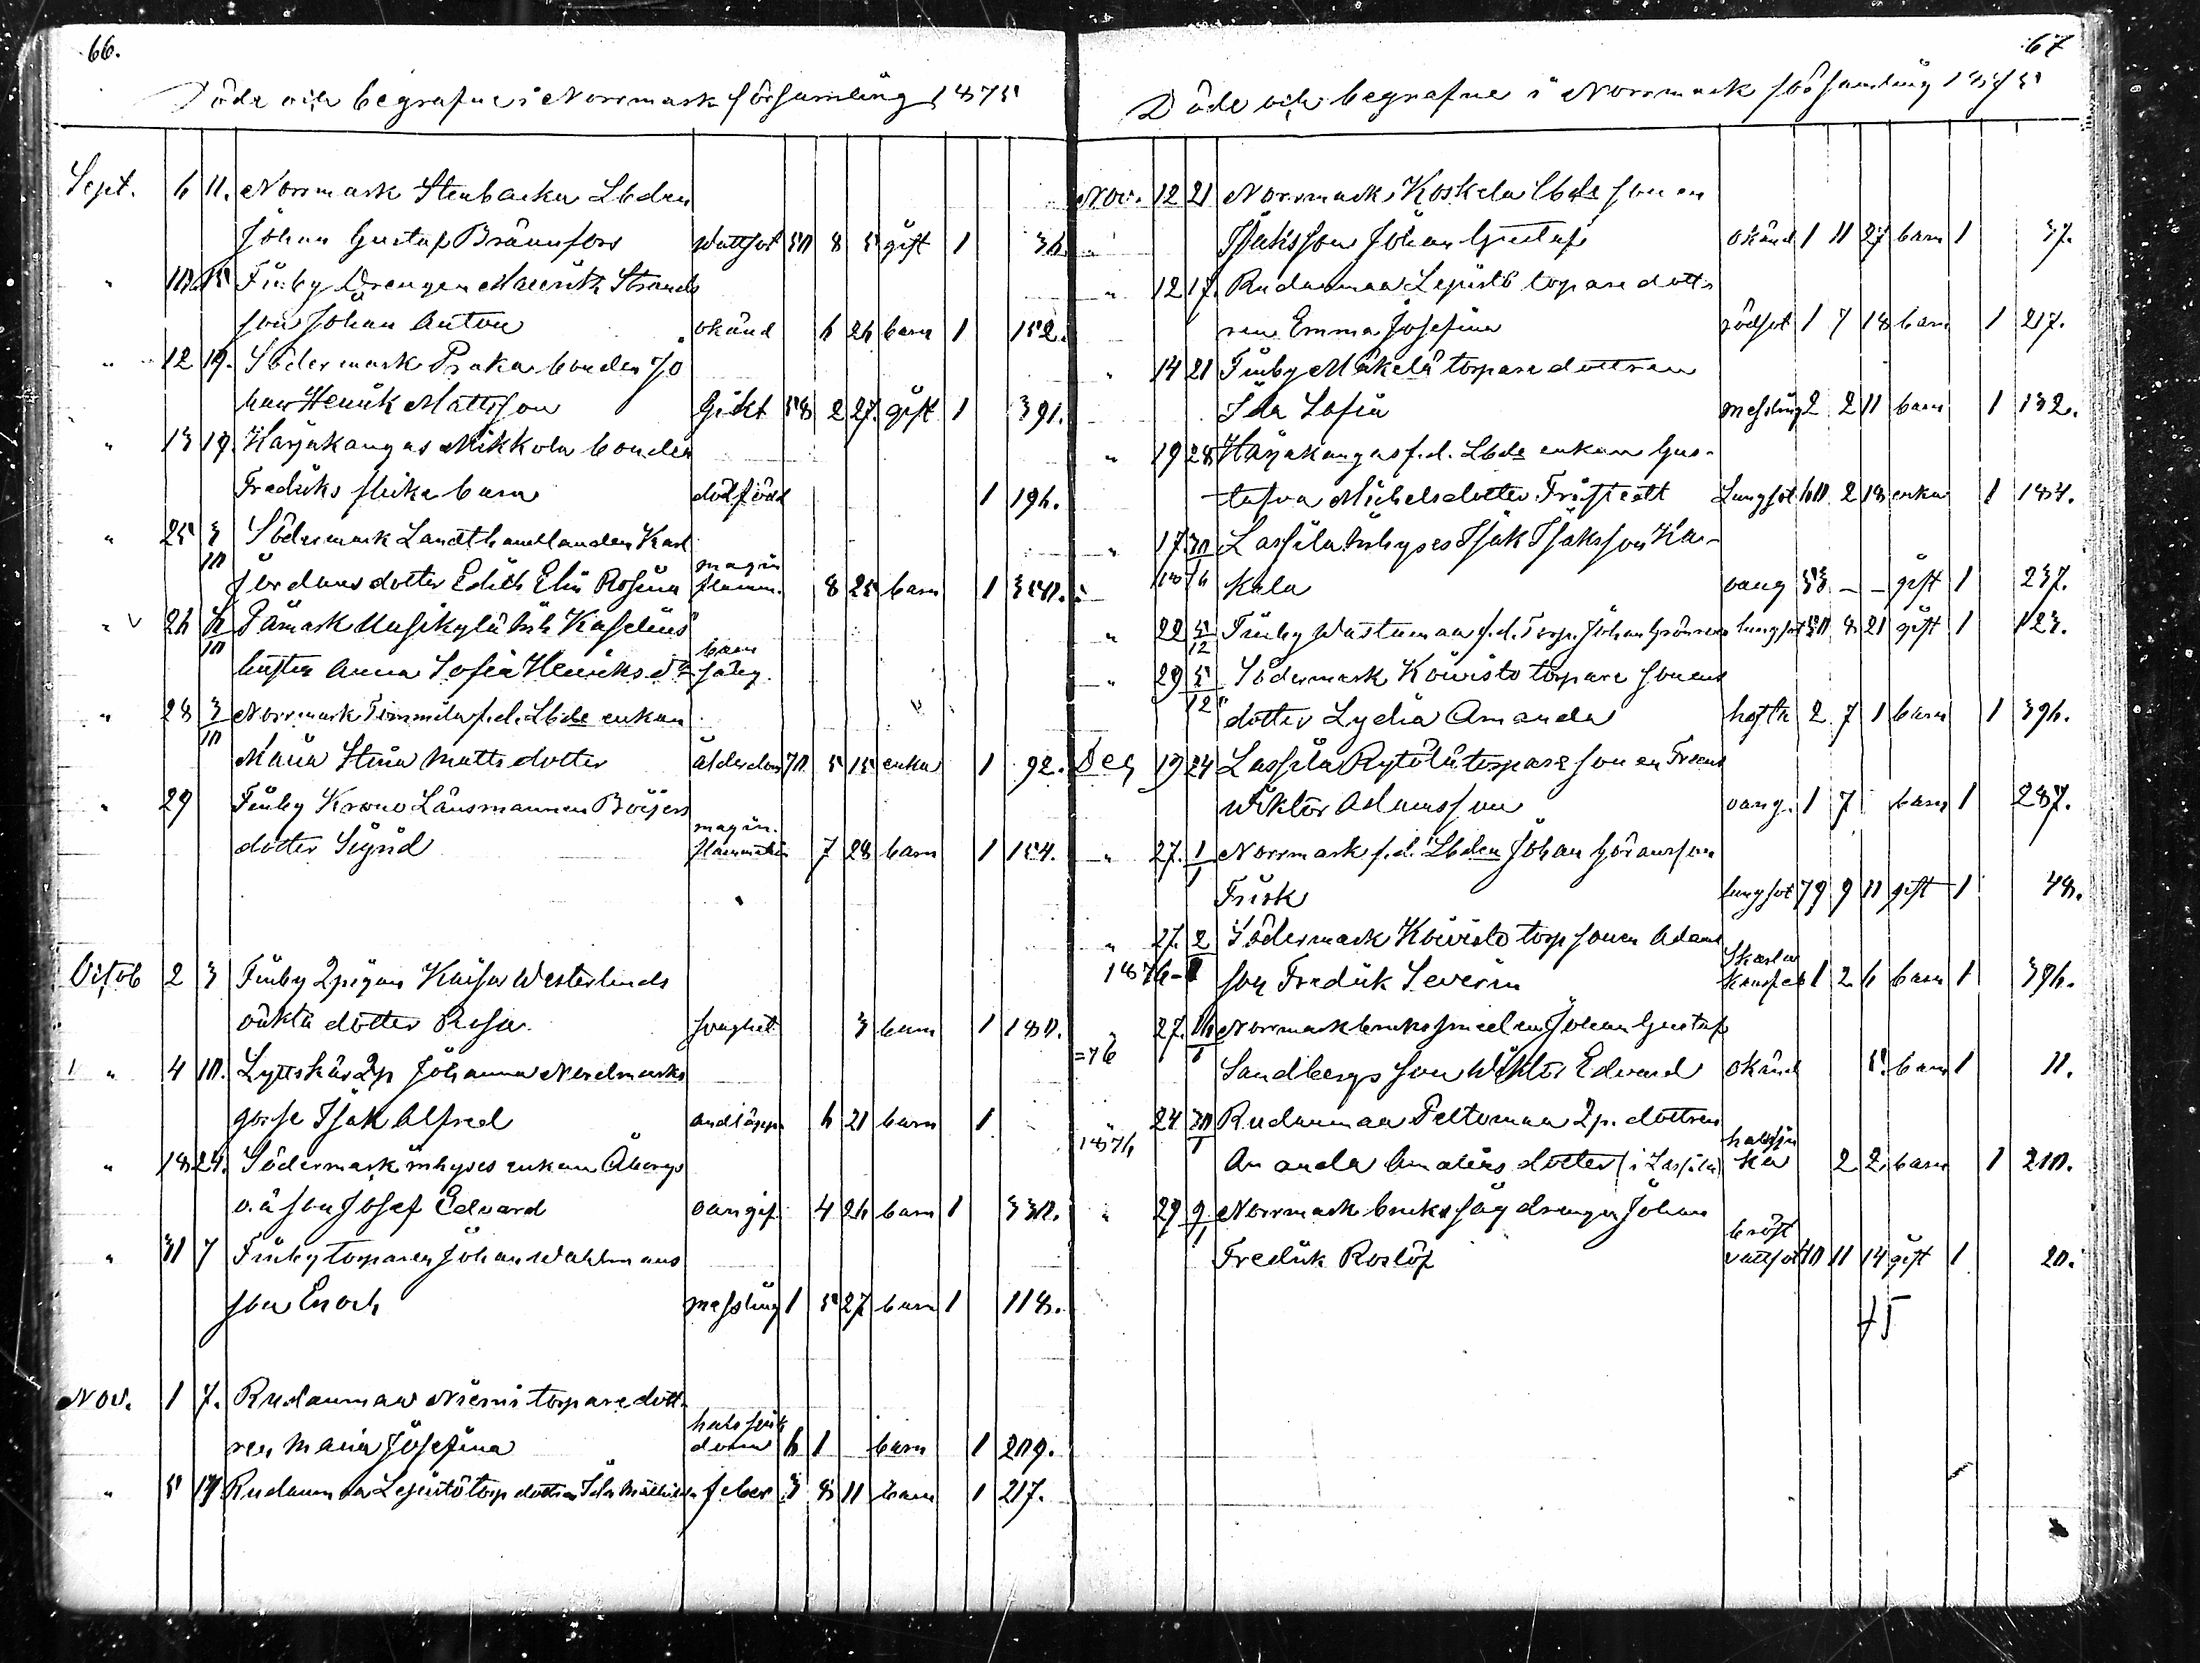 66.
Döde och begrafne i Norrmark församling 1875
Sept. 6 11. Norrmark Stenbacka Lbden
Johan Gustaf Brännfors wattsot 50 8 5 gift 1 36.
" 10 15 Finby Drengen Strands
son Johan Anton okänd 6 26 barn 1 152.
" 12 19. Södermark bonden Jo
han Henrik Mattsson Gikt 58 2 27. gift 1 391.
" 13 19. Harjakangas Mikkola bonden
Fredriks flicka barn dödfödd 1 196.
" 25 3/10 Södermark Landthandlanden Karl
Jordans dotter Edith Elin Rosina magin flamm. 8 25 barn 1 350.
" 26 Påmark Kaselius
hustru Anna Sofia Henriksdr barn säng.
" 28 3/10 Norrmark Timmila f.d. Lbde enkan
Maria Stina Mattsdotter ålderdom 70 5 15 enka 1 92.
" 29 Finby Krono Länsmannen Böijers
dotter Sigrid magin. flammation 7 28 barn 1 154.
Octob 2 3 Finby Qpigan Kaisa Westerlinds
oäkta dotter Rosa. svaghet 3 barn 1 180.
" 4 10. Lyttskär Qp Johanna Nordmarks
gosse Isak Alfred andtäppa 6 21 barn 1
" 18 24. Södermark inhyses enkan Åbergs
o.ä son Josef Edvard oangif. 4 26 barn 1 330.
" 31 7 Finby torparen Johan Wahlmans
son Enoch messling 1 5 27 barn 1 118.
Nov. 1 7. Rudanmaa Niemi torpare dott
ren Maria Josefina halssjuk doma 6 1 barn 1 209.
" 5 14 Rudanmaa Lepistö torp dottren Ida feber 3 8 11 barn 1 217.
67
Döde och begrafne i Norrmark församling 1875
Nov. 12 21 Norrmark Koskela lbde sonen
" Isaksson Johan Gustaf okänd 1 11 27 barn 1 37.
" 12 17. Rudanmaa Lepistö torpare dott
ren Emma Josefina rödsot 1 7 18 barn 1 217.
" 14 21 Finby Mäkelä torpare dottren
Ida Sofia messling 2 2 11 barn 1 132.
" 19 28 Harjakangas f.d. Lbde enkan Gus-
tafva Michelsdotter Fristedt Lungsot 60 2 18 enka 1 184.
" 17 30 Lassila inhyses Isak Isaksson Ka-
kala oang 53 - - gift 1 237.
" 22 5/12 Finby Wästamaa f.d. Torp. Johan Grönroos lungsot 50 8 21 gift 1 123.
" 29 5/12 Södermark Koivisto torpare sonens
dotter Lydia Amanda 2 7 1 barn 1 396.
Dec 19 24 Lassila Rytölä torpare sonen Frans
Wiktor Adamsson oang. 1 7 barn 1 287.
" 27. 1/1 Norrmark f.d. Lbden Johan Göransson
Frisk lungsot 79 9 11 gift 1 48.
" 27. 2 Södermark Koivisto torp sonen Adams
1876-1 son Fredrik Severin Skarla kansfeb 1 2 6 barn 1 396.
" 27. 16 Norrmark bruks smeden Johan Gustaf
=76 1 Sandbergs son Wiktor Edvard okänd 5 barn 1 11.
" 24 30 Rudanmaa Peltomaa Qp. dottren
1876 1 Amanda Amalias dotter (i Lassila) halssju ka 2 2 barn 1 210.
" 29 9/1 Norrmark bruks såg drengen Johan
Fredrik Roslöf bröst vattsot 40 11 14 gift 1 20.
75